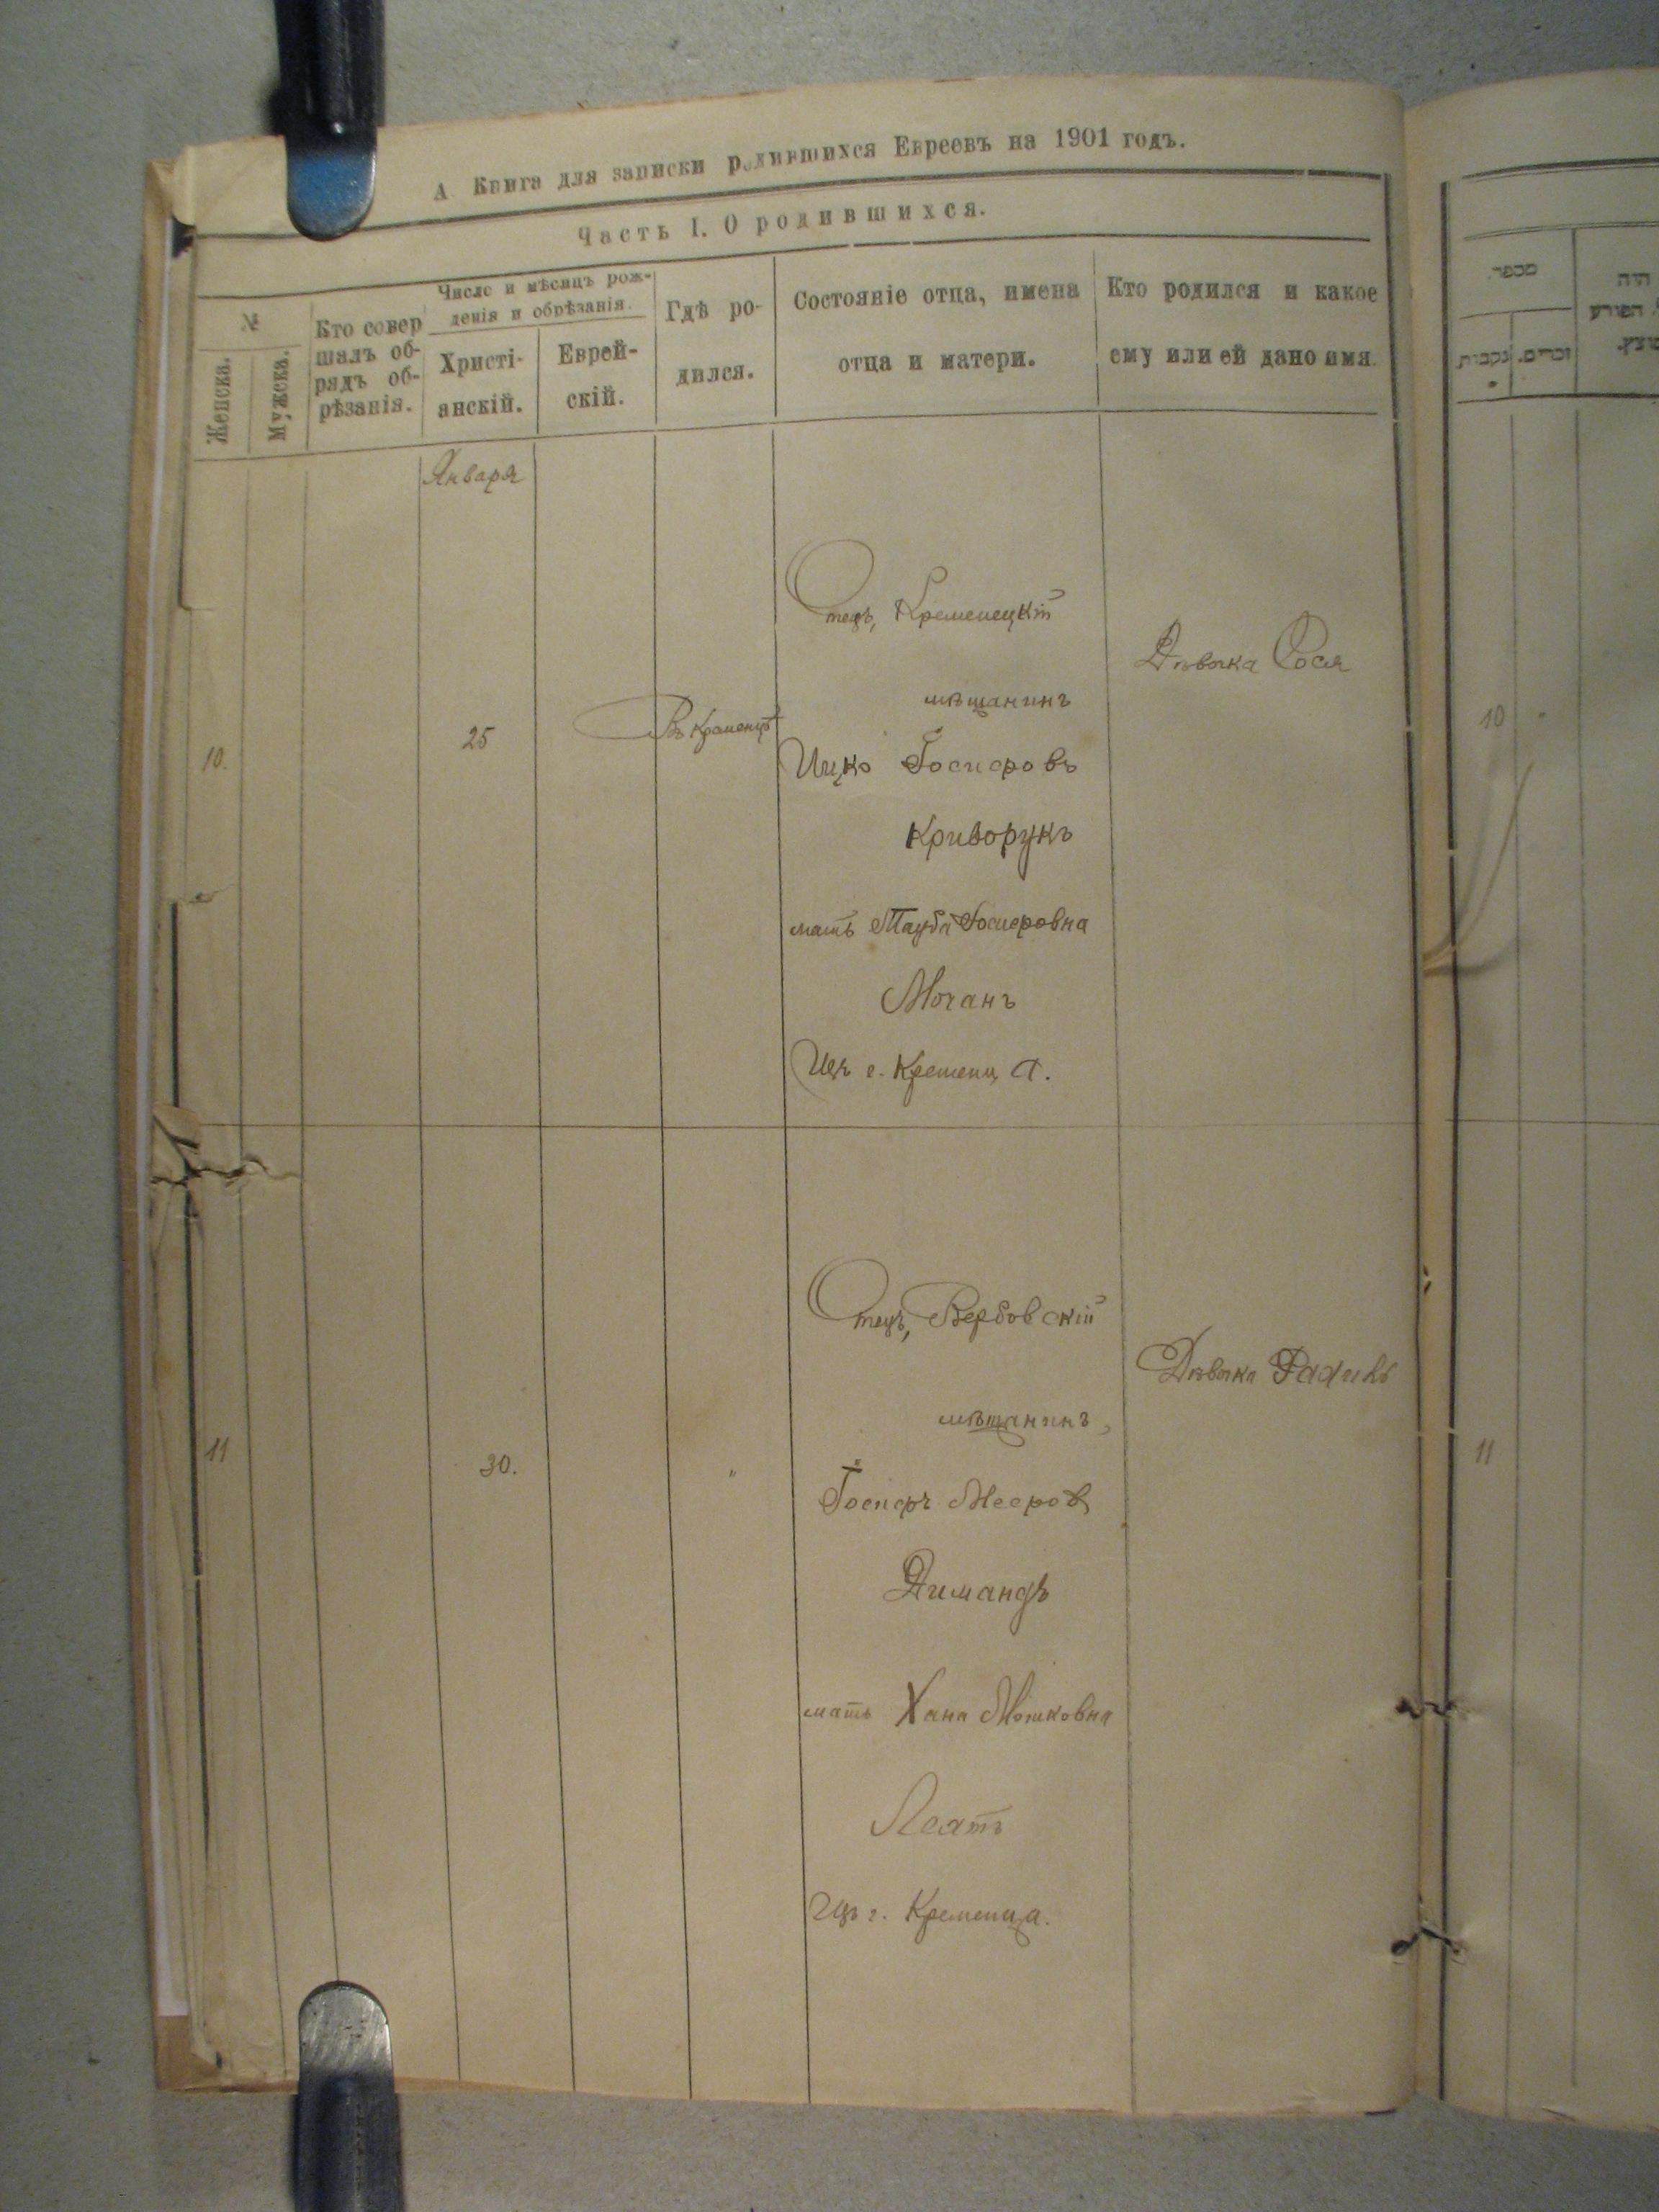 А Книга для записки родившихся Евреевъ на 1901 годъ.
Часть I. О родившихся.
№
Женска.
Мужска.
Кто совер
шалъ об-
рядъ об-
рѣзанія.
Число и мѣсяцъ рож-
денія и обрѣзанія.
Христі-
анскій.
Еврей-
скій.
Гдѣ ро-
дился.
Состояніе отца, имена
отца и матери.
Кто родился и какое
ему или ей дано имя.
Января
10.
25
Въ Кременцѣ
Отецъ, Кременецкій
мѣщанинъ
Ицко Іосиеровъ
Криворукъ
мать Тауба Іосиеровна
Мочанъ
Изъ г. Кременца.
Дѣвочка Сося
11
30.
"
Отецъ, Вербовскій
мѣщанинъ,
Мееров
Димандъ
мать Хана Мошковна
Изъ г. Кременца.
Дѣвочка Рахиль
מספר.
נקבות
זכרים.
היה
הפורע
10
11